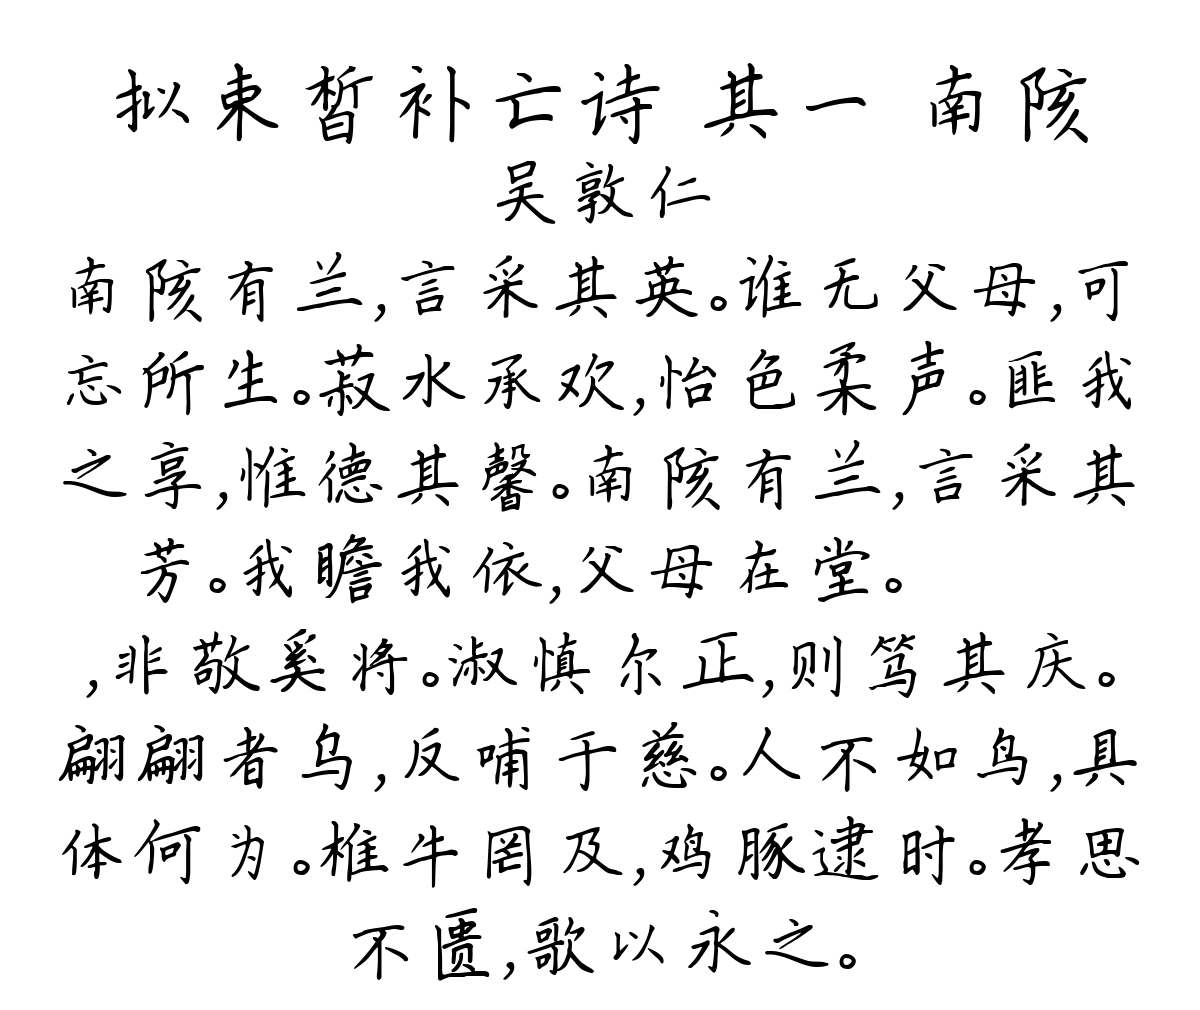 拟束皙补亡诗 其一 南陔
吴敦仁
南陔有兰,言采其英。谁无父母,可
忘所生。菽水承欢,怡色柔声。匪我
之享,惟德其馨。南陔有兰,言采其
芳。我瞻我依,父母在堂。
,非敬奚将。淑慎尔正,则笃其庆。
翩翩者乌,反哺于慈。人不如鸟,具
体何为。椎牛罔及,鸡豚逮时。孝思
不匮,歌以永之。